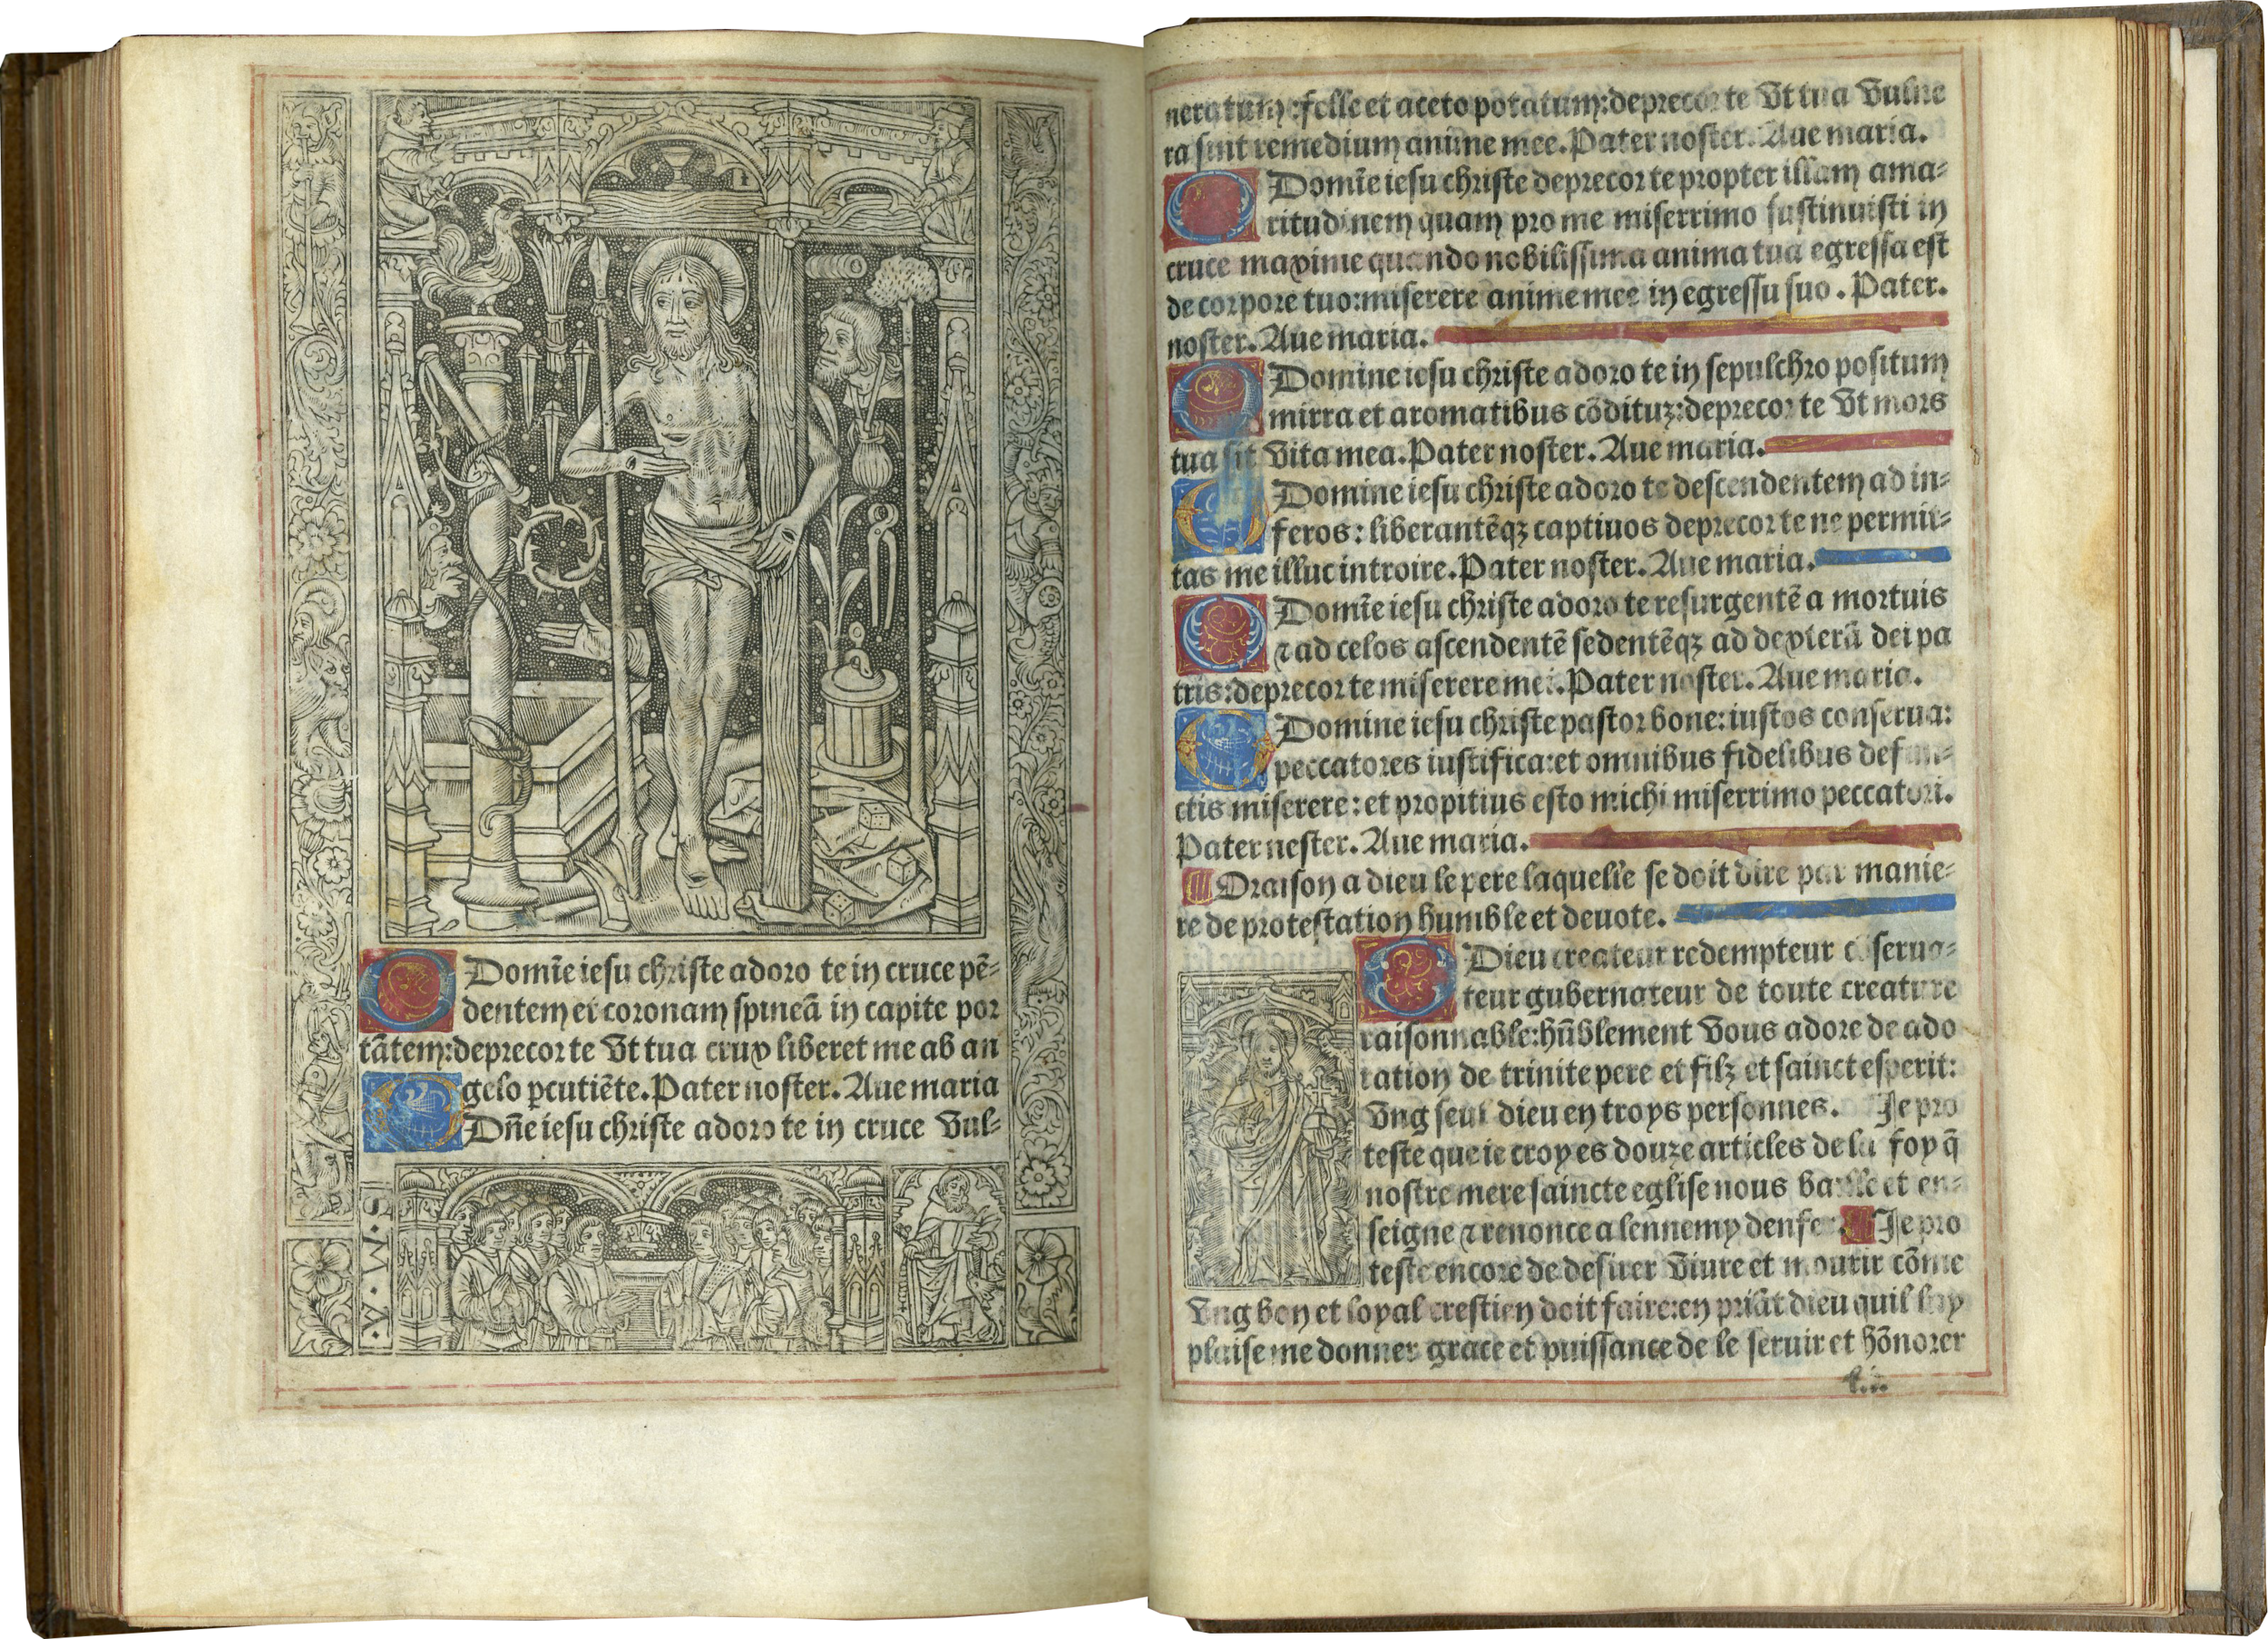 O Domīe iesu christe adoro te in cruce pē-
dentem et coronam spineā in capite por
tātem: deprecor te Vt tua crux liberet me ab an
gelo pcutiēte. Pater noster. Aue maria
O Dñe iesu christe adoro te in cruce Vul-
.A.M.S.
neratum: felle et aceto potatum: deprecor te Vt tua Vulne
ra sint remedium anime mee. Pater noster. Aue maria.
O Domīe iesu christe deprecor te propter illam ama-
ritudinem quam pro me miserrimo sustinuisti in
cruce maxime quando nobilissima anima tua egressa est
de corpore tuo: miserere anime mee in egressu suo. Pater.
noster. Aue maria.
O Domine iesu christe adoro te in sepulchro positum
mirra et aromatibus cōdituz: deprecor te Vt mors
tua sit Vita mea. Pater noster. Aue maria.
O Domine iesu christe adoro te descendentem ad in-
feros: liberantēqz captiuos deprecor te ne permit-
tas me illuc introire. Pater noster. Aue maria.
O Domīe iesu christe adoro te resurgentē a mortuis
⁊ ad celos ascendentē sedentēqz ad dexterā dei pa
tris: deprecor te miserere mei. Pater noster. Aue maria.
O Domine iesu christe pastor bone: iustos conserua:
peccatores iustifica: et omnibus fidelibus defun-
ctis miserere: et propitius esto michi miserrimo peccatori.
Pater nester. Aue maria.
Oraison a dieu le pere laquelle se doit dire par manie-
re de protestation humble et deuote.
O Dieu createur redempteur cōserua-
teur gubernateur de toute creature
raisonnable: hūblement Vous adore de ado
ration de trinite pere et filz et sainct esperit:
Vng seul dieu en troys personnes. Je pro
teste que ie croy es douze articles de la foy q̄
nostre mere saincte eglise nous baille et en-
seigne ⁊ renonce a lennemy denfer. Je pro
teste encore de desirer Viure et mourir cōme
Vng bon et loyal crestien doit faire: en priāt dieu quil luy
plaise me donner grace et puissance de le seruir et hōnorer